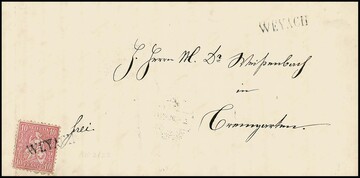 WEYACH
J. Herrn M. Dr Weißenbach
in
Bremgarten.
frei.
WEYA